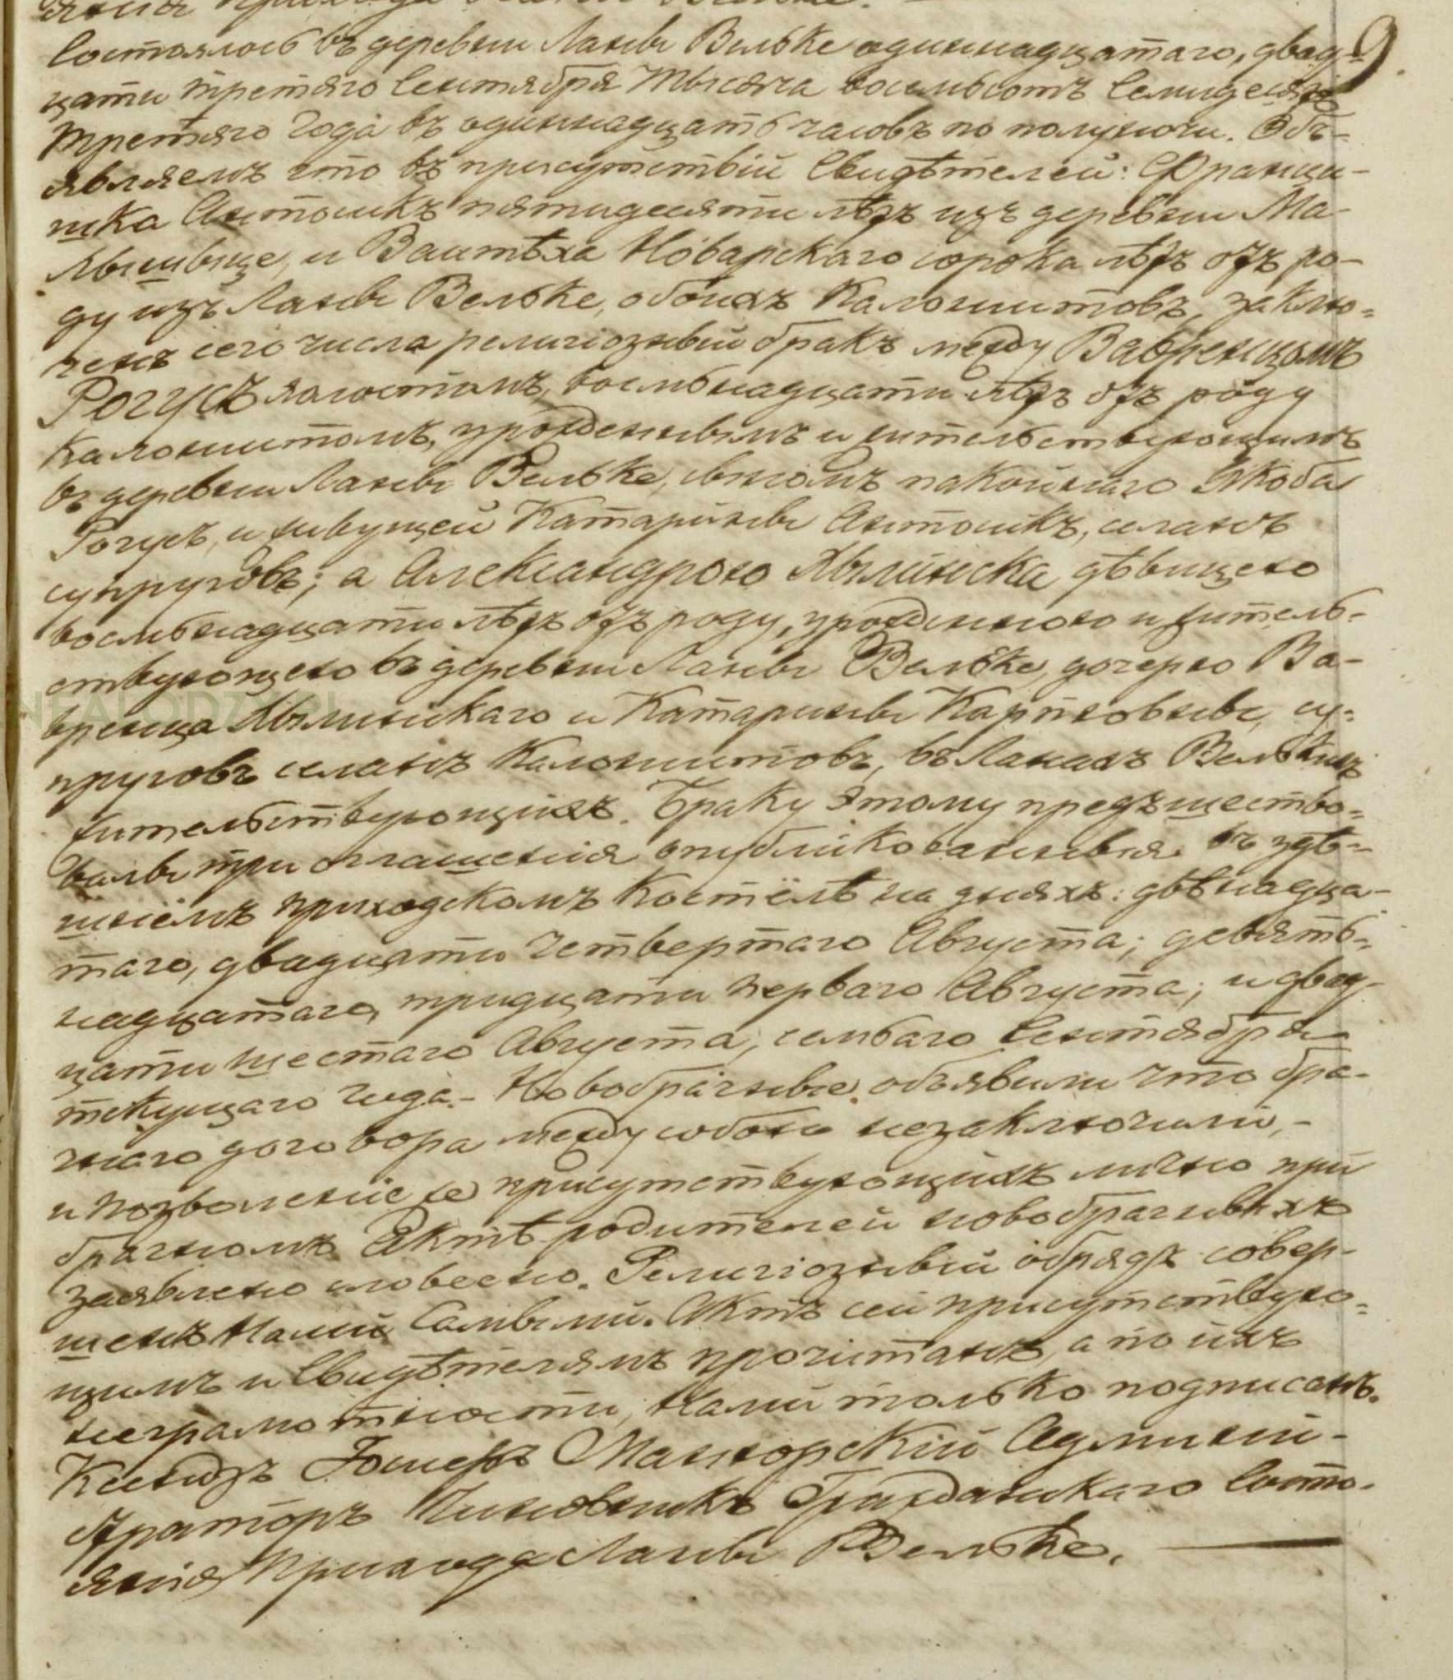 Состоялось въ деревни Ланы Вельке одиннадцатаго, двад-
цати третяго Сентября тысяча восемьсотъ семидесятъ
третяго года въ одиннадцать часовъ по полуночи. Объ-
являемъ что въ присутствіи Свидѣтелей: Франци-
шка Антоникъ пятидесяти лѣтъ изъ деревни Ма-
и Воитѣха Новарскаго сорока лѣтъ отъ ро-
ду изъ Ланы Вельке, обоихъ Калонистовъ, заклю-
ченъ сего числа религіозный бракъ между Вавренцомъ
Рогусъ холостымъ, восьмьнадцати лѣтъ отъ роду
Калонистомъ, урожденнымъ и жительствующимъ
въ деревни Ланы Вельке, сыномъ покойнаго Якоба
Рогусъ, и живущей Катарины Антоникъ, селянъ
супруговъ; а Александрою дѣвицею
восьмьнадцати лѣтъ отъ роду, урожденною и житель-
ствующею въ деревни Ланы Вельке, дочерью Ва-
вренца и Катарины Карповны, су-
пруговъ селянъ Калонистовъ, въ Ланахъ Велькихъ
жительствующихъ. Браку этому предъшество-
валы три оглашенія опубликованныя въ здѣ-
шнёмъ приходскомъ Костёлѣ на дняхъ: двѣнадца-
таго, двадцати четвертаго Августа; девять-
надцатаго, тридцати перваго Августа; и двад-
цати шестаго Августа, семьаго Сентября
текущаго года. - Новобрачные объявили что бра-
чнаго договора между собою незаключили, -
и позволеніе присутствующихъ лично при
брачномъ Актѣ родителей новобрачныхъ
заявлено словесно. Религіозный обрядъ совер-
шенъ Нами Самыми. Актъ сей присутствую-
щимъ и Свидѣтелямъ прочитанъ, а по ихъ
неграмотности, Нами только подписанъ.
Ксендзъ Іосифъ Маиорскій Админи-
страторъ Чиновникъ Гражданскаго Состо-
янія Прихода Ланы Вельке.